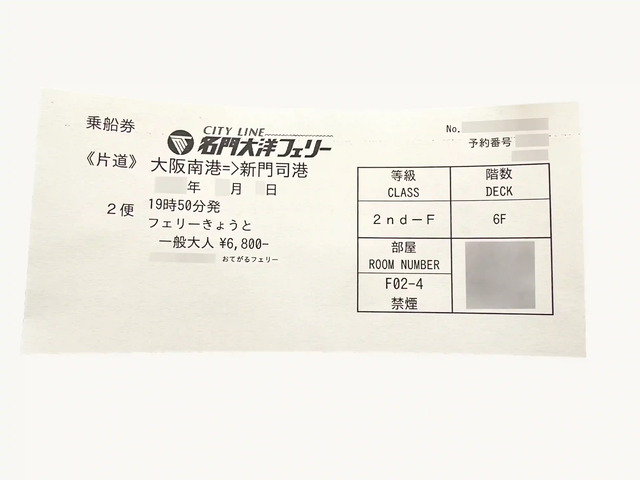 乗船券
CITY LINE
名門大洋フェリー
No.
予約番号
《片道》 大阪南港=>新門司港
年 月 日
2便 19時50分発
フェリーきょうと
一般大人 ¥6,800-
おてがるフェリー
等級 階数
CLASS DECK
2nd-F 6F
部屋
ROOM NUMBER
F02-4
禁煙